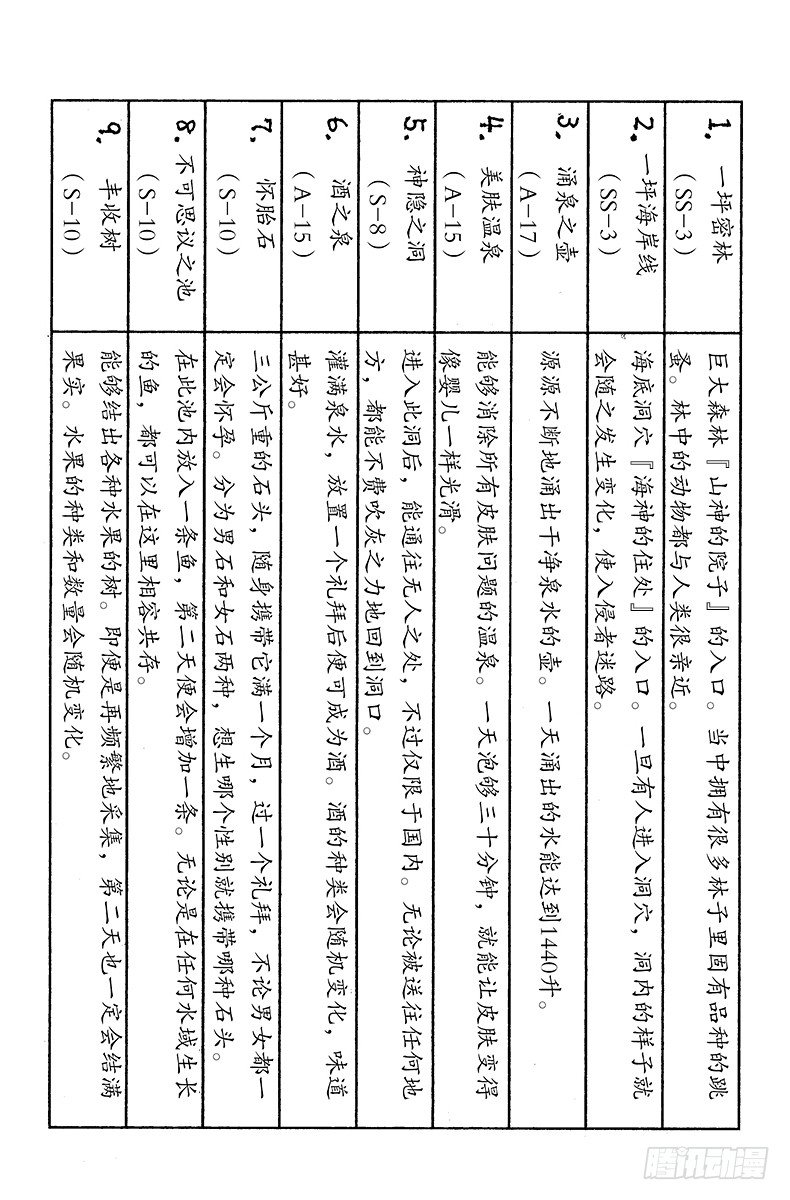 1. 一坪密林
(SS-3)
巨大森林『山神的院子』的入口。当中拥有很多林子里固有品种的跳
蚤。林中的动物都与人类很亲近。
2. 一坪海岸线
(SS-3)
海底洞穴『海神的住处』的入口。一旦有人进入洞穴，洞内的样子就
会随之发生变化，使入侵者迷路。
3. 涌泉之壶
(A-17)
源源不断地涌出干净泉水的壶。一天涌出的水能达到1440升。
4. 美肤温泉
(A-15)
能够消除所有皮肤问题的温泉。一天泡够三十分钟，就能让皮肤变得
像婴儿一样光滑。
5. 神隐之洞
(S-8)
进入此洞后，能通往无人之处，不过仅限于国内。无论被送往任何地
方，都能不费吹灰之力地回到洞口。
6. 酒之泉
(A-15)
灌满泉水，放置一个礼拜后便可成为酒。酒的种类会随机变化，味道
甚好。
7. 怀胎石
(S-10)
三公斤重的石头，随身携带它满一个月，过一个礼拜，不论男女都一
定会怀孕。分为男石和女石两种，想生哪个性别就携带哪种石头。
8. 不可思议之池
(S-10)
在此池内放入一条鱼，第二天便会增加一条。无论是在任何水域生长
的鱼，都可以在这里相容共存。
9. 丰收树
(S-10)
能够结出各种水果的树。即便是再频繁地采集，第二天也一定会结满
果实。水果的种类和数量会随机变化。
腾讯动漫